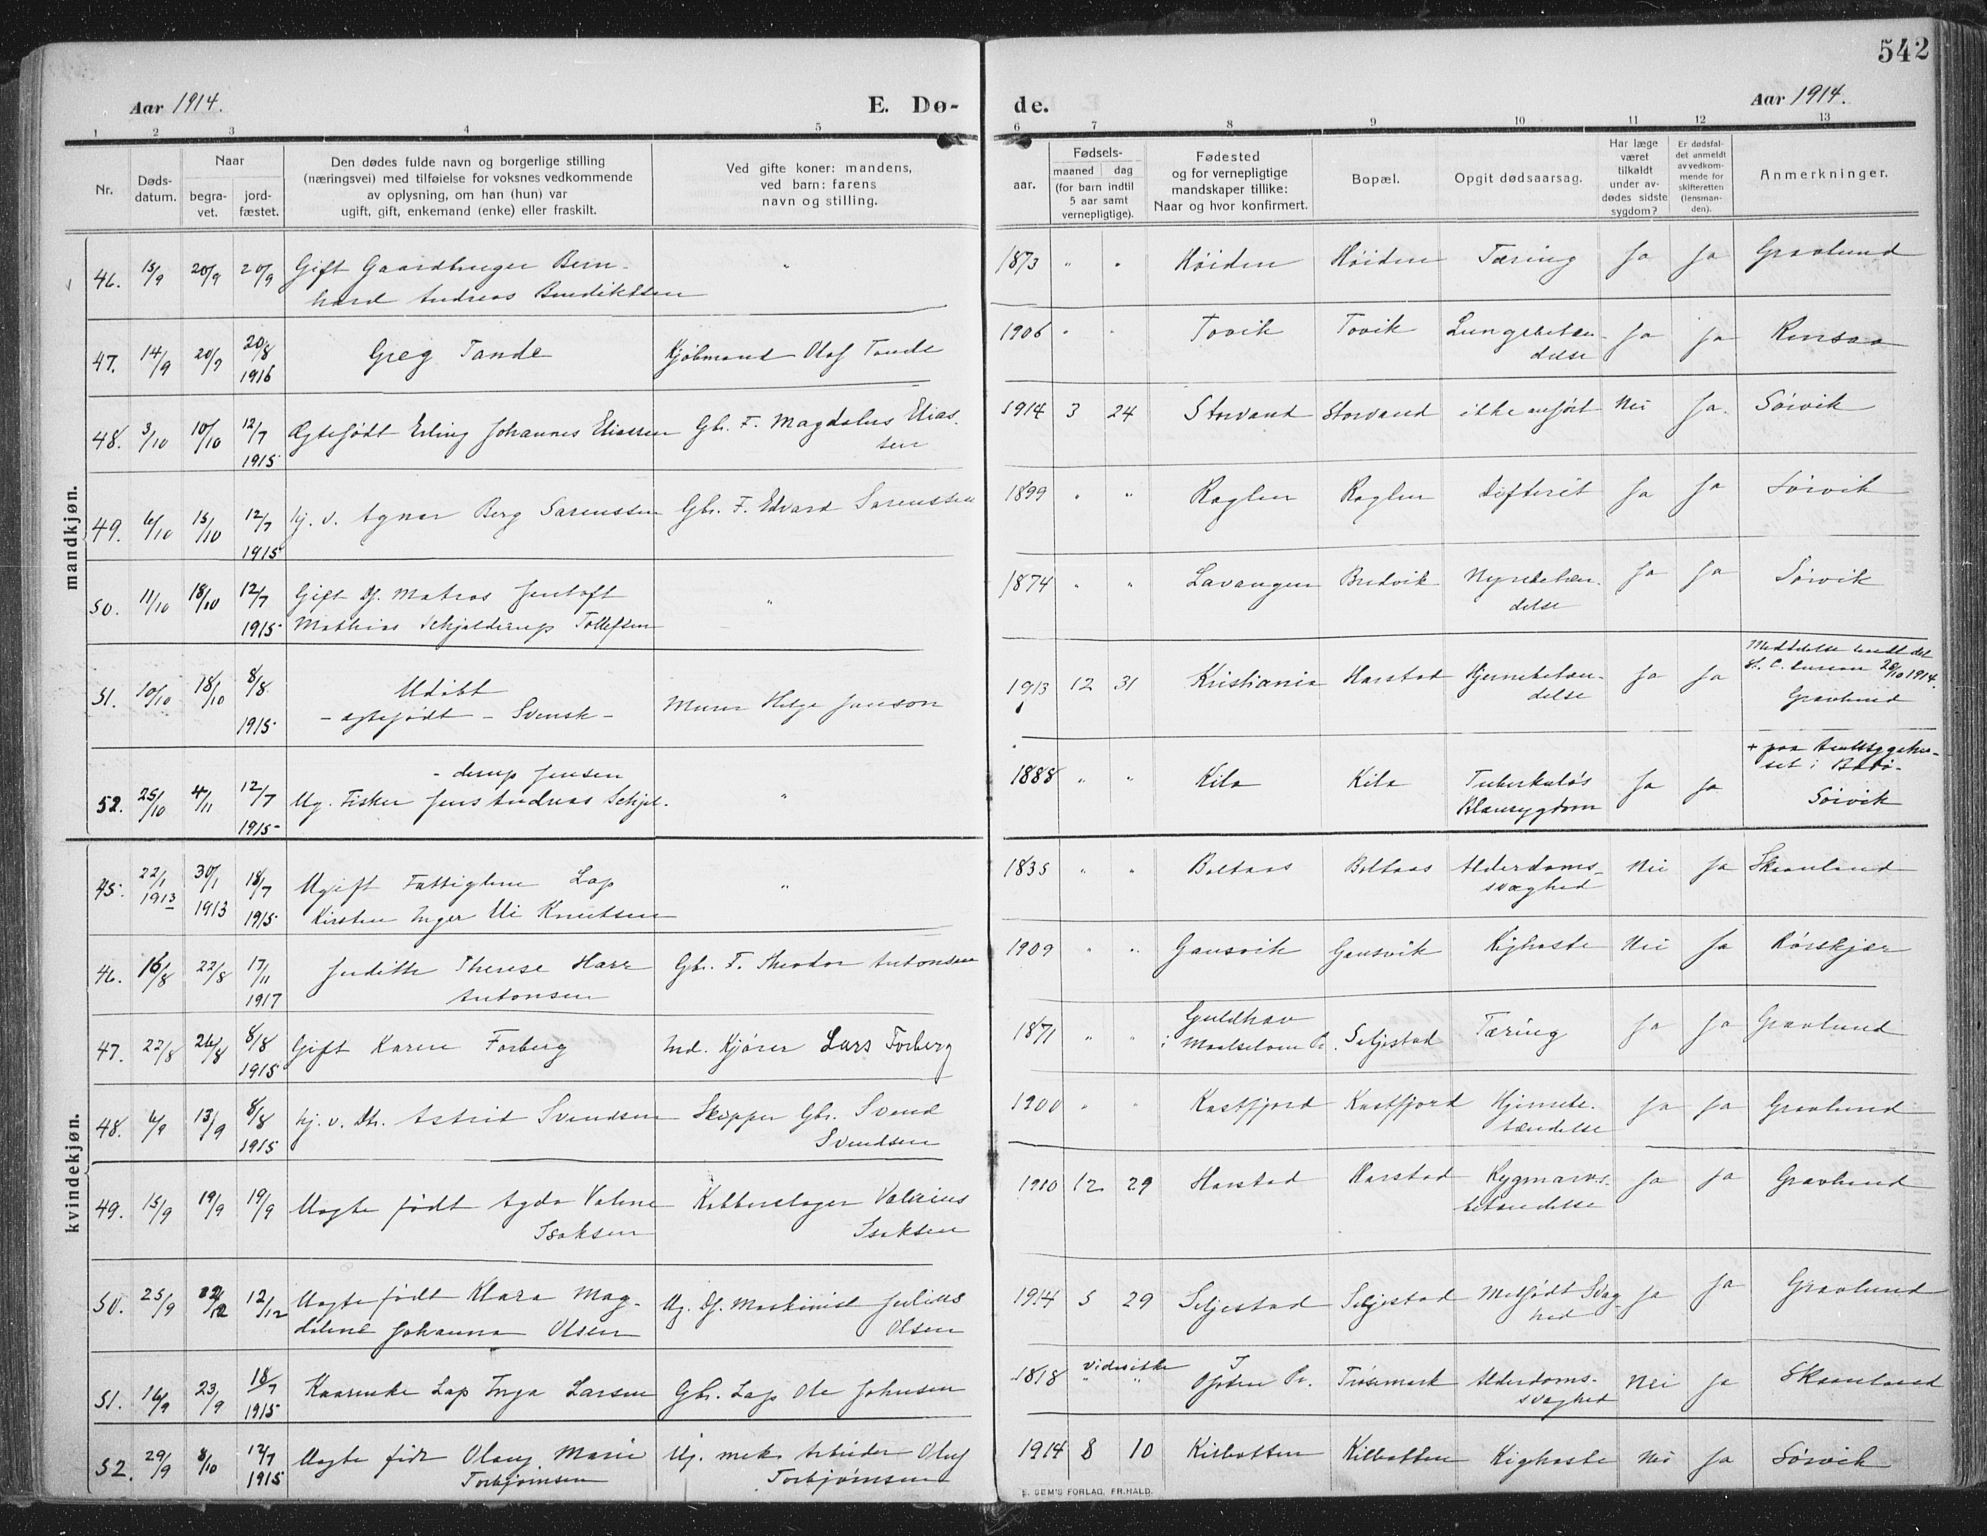 542
Aar 1914.
E. Dø-
de.
Aar 1914.
1 2 3 4 5 6 7 8 9 10 11 12 13
Nr.
Døds-
datum.
Naar
begra-
vet.
jord-
fæstet.
Den dødes fulde navn og borgerlige stilling
(næringsvei) med tilføielse for voksnes vedkommende
av oplysning, om han (hun) var
ugift, gift, enkemand (enke) eller fraskilt.
Ved gifte koner: mandens,
ved barn: farens
navn og stilling.
aar.
Fødsels-
maaned dag
(for barn indtil
5 aar samt
vernepligtige).
Fødested
og for vernepligtige
mandskaper tillike:
Naar og hvor konfirmert.
Bopæl.
Opgit dødsaarsag.
Har læge
været
tilkaldt
under av-
dødes sidste
sygdom?
Er dødsfal-
det anmeldt
av vedkom-
mende for
skifteretten
(lensman-
den).
Anmerkninger.
mandkjøn.
46. 15/9 20/9 20/9 Gift Gaardbruger Bern- " 1873 " " Høiden Høiden Tæring Ja Ja Gravlund
hard Andreas Bendiktsen
47. 14/9 20/9 20/8 Greg Tande Kjøbmand Olaf Tande 1906 " " Tovik Tovik Lungebetæn- Ja Ja Rensaa
1916 delse
48. 3/10 10/10 12/7 Ægtefødt Erling Johannes Eliassen Gbr. F. Magdalus Elias- 1914 3 24 Storvand Storvand ikke anført Nei Ja. Sørvik
1915 sen
49. 6/10 15/10 12/7 hj. v. Agnar Berg Sørenssen Gbr. F. Edvard Sørenssen 1899 " " Roglen Roglen Difterit Ja Ja Sørvik
1915
50. 11/10 18/10 12/7 Gift Df. Matros Jentoft " 1874 " " Lavangen Bredvik Nyrebetæn- Ja Ja Sørvik
1915 Mathias Schjelderup Tollefsen delse
51. 10/10 18/10 8/8 Udøbt Murer Helge Janson 1913 12 31 Kristiania Harstad Hjernebetæn- Ja Ja Meddelelse sendt det
1915 - ægtefødt - Svensk - delse 20/10 1914.
Gravlund
52. 25/10 4/11 12/7 - derup Jensen " 1888 " " Kila Kila Tuberkuløs Ja Ja + paa Amtssygehu-
1915 Ug. Fisker Jens Andreas Schjel- Blæresygdom set i Bodø-
Sørvik
kvindekjøn.
45. 22/1 30/1 18/7 Ugift Fattiglem Lap " 1835 " " Boltaas Boltaas Alderdoms- Nei Ja Skaanland
1913 1913 1915 Kirsten Inger Eli Knutsen svaghed
46. 16/8 22/8 17/11 Judith Therese Harr Gbr. F. Theodor Antonsen 1909 " " Gansvik Gansvik Kighoste Nei Ja Rørskjær
1917 Antonsen
47. 22/8 26/8 8/8 Gift Karen Forberg Ind. Kjører Lars Forberg 1871 " " Guldhav Seljestad Tæring Ja Ja Gravlund
1915 i Maalselven P.
48. 6/9 13/9 8/8 hj. v. Dtr. Astrid Svendsen Skipper Gbr. Svend 1900 " " Kastfjord Kastfjord Hjernebe- Ja Ja Gravlund
1915 Svendsen tændelse
49. 15/9 19/9 19/9 Uægte født Agda Valine Kobberslager Valerius 1910 12 29 Harstad Harstad Rygmarvs- Ja Ja Gravlund
Isaksen Isaksen betændelse
50. 25/9 12/12 Uægte født Klara Mag- Ug. Df. Maskinist Julius 1914 5 29 Seljestad Seljestad Medfødt Svag- Ja Ja Gravlund
dalene Johanna Olsen Olsen hed
51. 16/9 23/9 18/7 Kaarenke Lap Inga Larsen Gbr. Lap Ole Johnsen 1818 Vides ikke I Trøsemark Alderdoms- Nei Ja Skaanland
1915 " " Ofoten P. svaghed
52. 29/9 8/10 12/7 Uægte født Olaug Marie Uj. mek. Arbeider Oluf 1914 8 10 Kilbotten Kilbotten Kighoste Nei Ja Sørvik
1915 Torbjørnsen Torbjørnsen
E. SEM'S FORLAG, FR.HALD.